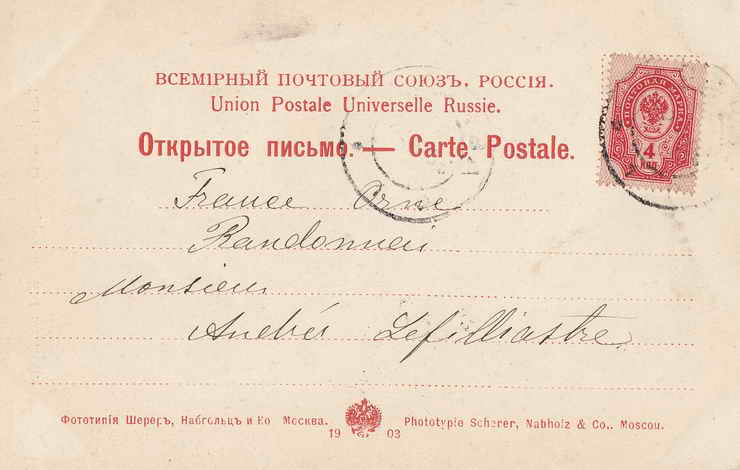 ВСЕМІРНЫЙ ПОЧТОВЫЙ СОЮЗЪ, РОССІЯ.
Union Postale Universelle Russie.
Открытое письмо. — Carte Postale.
ПОЧТОВАЯ МАРКА
4
КОП
France Orne
Randonnai
Monsieur
André Lefilliastre
Фототипія Шереръ, Набгольцъ и Ко Москва.
Phototypie Scherer, Nabholz & Co., Moscou.
19 03